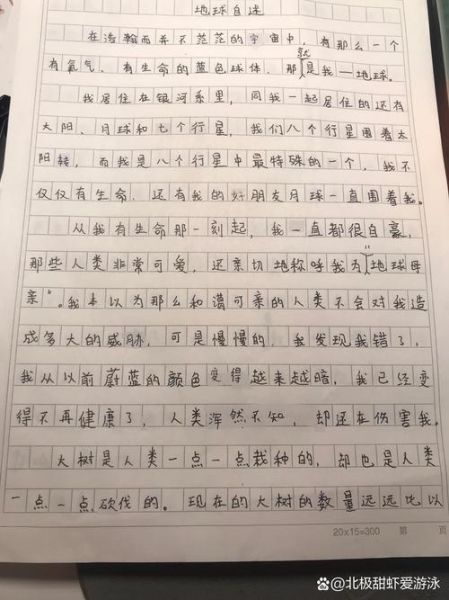 地球自述
在浩瀚而并不茫茫的宇宙中，有那么一个
有氧气、有生命的蓝色球体，那就是我—地球。
我居住在银河系里，同我一起居住的还有
太阳、月球和七个行星，我们八个行星围着太
阳转，而我是八个行星中最特殊的一个，我不
仅仅有生命，还有我的好朋友月球一直围着我。
从我有生命那一刻起，我一直都很自豪，
那些人类非常可爱，还亲切地称呼我为“地球母
亲”。我本以为那么和谐可亲的人类不会对我造
成多大的威胁，可是慢慢的，我发现我错了，
我从以前蔚蓝的颜色变得越来越暗，我已经变
得不再健康了，人类浑然不知，却还在伤害我。
大树是人类一点一点栽种的，却也是人类
一点一点砍伐的。现在的大树的数量远远比以
20×15=300 第 页
@北极甜虾爱游泳